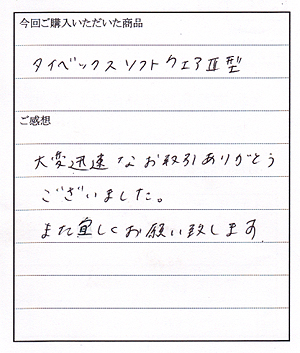 今回ご購入いただいた商品
タイベックスソフトウェアⅢ型
ご感想
大変迅速なお取引ありがとう
ございました。
また宜しくお願い致します